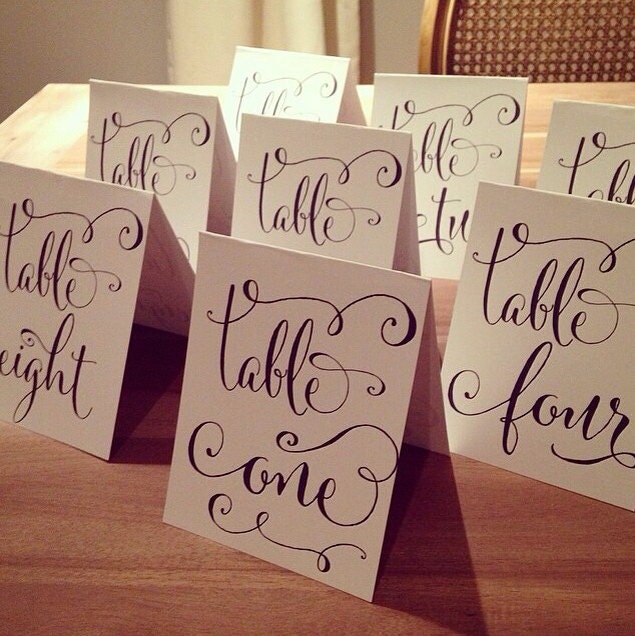 table
table
table
table
table
table
tw
table
eight
table
one
table
four